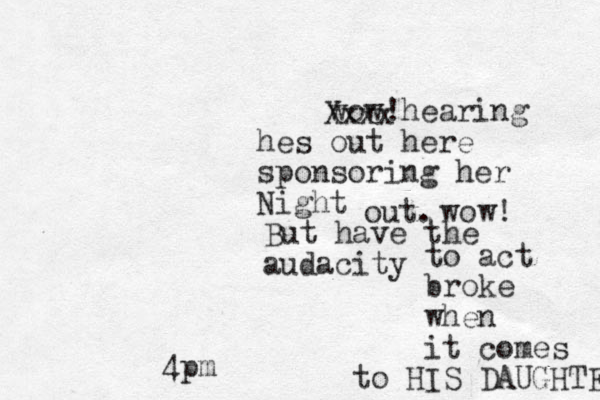 wow! hearing
hes out here
sponsoring her
Night out. wow!
But have the
audacity to act
broke
when
it comes
4pm
to HIS DAUGHTE